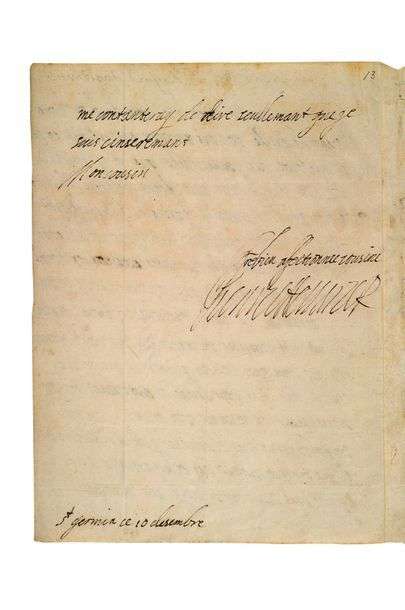 13
me contanteray de dire seullemant que je
suis cinseremant
Mon cousin
Vostre bien affectionnee cousine
Henriette Marie R
St germin ce 10 desembre